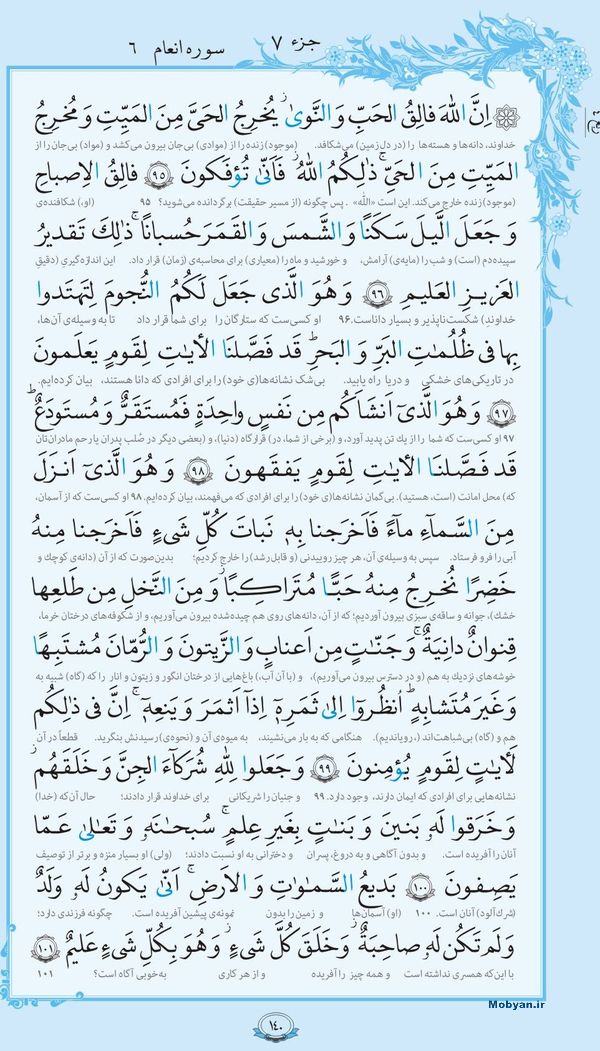 جزء ۷
سوره انعام ۶
اِنَّ اللّٰهَ فالِقُ الحَبِّ وَ النَّوىٰ ۖ يُخرِجُ الحَىَّ مِنَ المَيِّتِ وَ مُخرِجُ
خداوند، دانه‌ها و هسته‌ها را (در دل زمین) می‌شکافد. (موجود) زنده را از (موادی) بی‌جان بیرون می‌کشد و (مواد) بی‌جان را از
المَيِّتِ مِنَ الحَىِّ ۚ ذٰلِكُمُ اللّٰهُ ۖ فَاَنّىٰ تُؤفَكونَ ۹۵ فالِقُ الاِصباحِ
(موجود) زنده خارج می‌کند. این است «الله». پس چگونه (از مسیر حقیقت) برگردانده می‌شوید؟ ۹۵ (او،) شکافنده‌ی
وَ جَعَلَ الَّيلَ سَكَنًا وَ الشَّمسَ وَ القَمَرَ حُسبانًا ۚ ذٰلِكَ تَقديرُ
سپیده‌دم (است) و شب را (مایه‌ی) آرامش، و خورشید و ماه را (معیاری) برای محاسبه‌ی (زمان) قرار داد. این اندازه‌گیری (دقیقِ
العَزيزِ العَليمِ ۹۶ وَ هُوَ الَّذى جَعَلَ لَكُمُ النُّجومَ لِتَهتَدوا
خداوندِ) شکست‌ناپذیر و بسیار داناست. ۹۶ او کسی‌ست که ستارگان را برای شما قرار داد تا به وسیله‌ی آن‌ها،
بِها فى ظُلُماتِ البَرِّ وَ البَحرِ ۗ قَد فَصَّلنَا الأٰياتِ لِقَومٍ يَعلَمونَ
در تاریکی‌های خشکی و دریا راه یابید. بی‌شک نشانه‌ها(ی خود) را برای افرادی که دانا هستند، بیان کرده‌ایم.
۹۷ وَ هُوَ الَّذى اَنشَاَكُم مِن نَفسٍ واحِدَةٍ فَمُستَقَرٌّ وَ مُستَودَعٌ ۗ
۹۷ او کسی‌ست که شما را از یك تن پدید آورد، و (برخی از شما، در) قرارگاه (دنیا)، و (بعضی دیگر در صُلب پدران یا رحم مادران‌تان
قَد فَصَّلنَا الأٰياتِ لِقَومٍ يَفقَهونَ ۹۸ وَ هُوَ الَّذى اَنزَلَ
که) محل امانت (است، هستید). بی‌گمان نشانه‌ها(ی خود) را برای افرادی که می‌فهمند، بیان کرده‌ایم. ۹۸ او کسی‌ست که از آسمان،
مِنَ السَّماءِ ماءً فَاَخرَجنا بِهٖ نَباتَ كُلِّ شَىءٍ فَاَخرَجنا مِنهُ
آبی را فرو فرستاد. سپس به وسیله‌ی آن، هر چیز روییدنی (و قابل رشد) را خارج کردیم؛ بدین‌صورت که از آن (دانه‌ی کوچك و
خَضِرًا نُخرِجُ مِنهُ حَبًّا مُتَراكِبًا وَ مِنَ النَّخلِ مِن طَلعِها
خشك)، جوانه و ساقه‌ی سبزی بیرون آوردیم؛ که از آن، دانه‌های روی هم چیده‌شده بیرون می‌آوریم، و از شکوفه‌های درختان خرما،
قِنوانٌ دانِيَةٌ وَ جَنّاتٍ مِن اَعنابٍ وَ الزَّيتونَ وَ الرُّمّانَ مُشتَبِهًا
خوشه‌های نزدیك به هم (و در دسترس بیرون می‌آوریم)، و (با آن آب،) باغ‌هایی از درختان انگور و زیتون و انار را که (گاه) شبیه به
وَ غَيرَ مُتَشابِهٍ ۗ اُنظُروا اِلىٰ ثَمَرِهٖ اِذا اَثمَرَ وَ يَنعِهٖ ۚ اِنَّ فى ذٰلِكُم
هم و (گاه) بی‌شباهت‌اند (، رویاندیم). هنگامی که به بار می‌نشیند، به میوه‌ی آن و (نحوه‌ی) رسیدنش بنگرید. قطعاً در آن
لَأٰياتٍ لِقَومٍ يُؤمِنونَ ۹۹ وَ جَعَلوا لِلّٰهِ شُرَكاءَ الجِنَّ وَ خَلَقَهُم ۖ
نشانه‌هایی برای افرادی که ایمان دارند، وجود دارد. ۹۹ و جنیان را شریکانی برای خداوند قرار دادند؛ حال آن‌که (خدا)
وَ خَرَقوا لَهٗ بَنينَ وَ بَناتٍ بِغَيرِ عِلمٍ ۚ سُبحانَهٗ وَ تَعالىٰ عَمّا
آنان را آفریده است. و بدون آگاهی و به دروغ، پسران و دخترانی به او نسبت دادند؛ (ولی) او بسیار منزه و برتر از توصیف
يَصِفونَ ۱۰۰ بَديعُ السَّماواتِ وَ الاَرضِ ۖ اَنّىٰ يَكونُ لَهٗ وَلَدٌ
(شرك‌آلودِ) آنان است. ۱۰۰ (او) آسمان‌ها و زمین را بدون نمونه‌ی پیشین آفریده است. چگونه فرزندی دارد؛
وَ لَم تَكُن لَهٗ صاحِبَةٌ ۖ وَ خَلَقَ كُلَّ شَىءٍ ۖ وَ هُوَ بِكُلِّ شَىءٍ عَليمٌ ۱۰۱
با این‌که همسری نداشته است و همه چیز را آفریده و از هر کاری به‌خوبی آگاه است؟ ۱۰۱
۱۴۰
Mobyan.ir